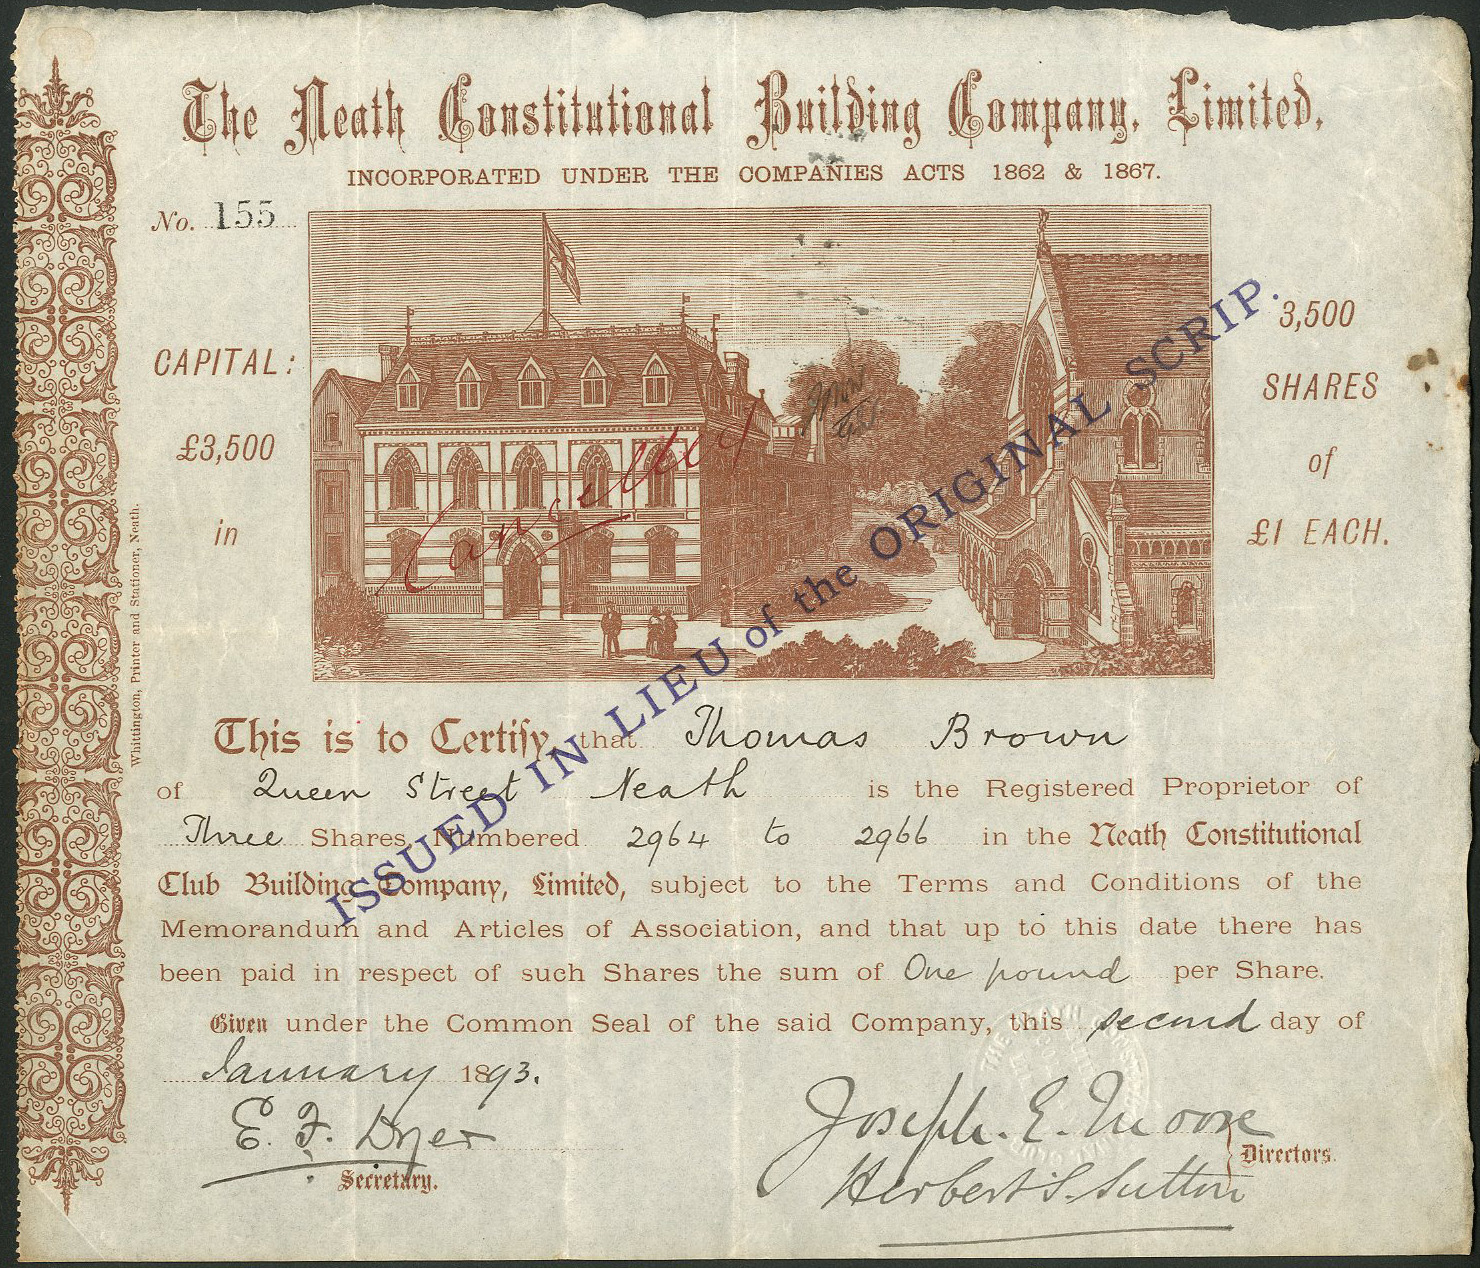 The Neath Constitutional Building Company, Limited,
INCORPORATED UNDER THE COMPANIES ACTS 1862 & 1867.
No. 155
CAPITAL:
£3,500
in
3,500
SHARES
of
£1 EACH.
Cancelled
ISSUED IN LIEU of the ORIGINAL SCRIP.
Whittington, Printer and Stationer, Neath.
This is to Certify that Thomas Brown
of Queen Street Neath is the Registered Proprietor of
Three Shares Numbered 2964 to 2966 in the Neath Constitutional
Club Building Company, Limited, subject to the Terms and Conditions of the
Memorandum and Articles of Association, and that up to this date there has
been paid in respect of such Shares the sum of One pound per Share.
Given under the Common Seal of the said Company, this second day of
January 1893.
E. F. Dyer
Secretary.
Joseph. E. Moore
Herbert S. Sutton
Directors.